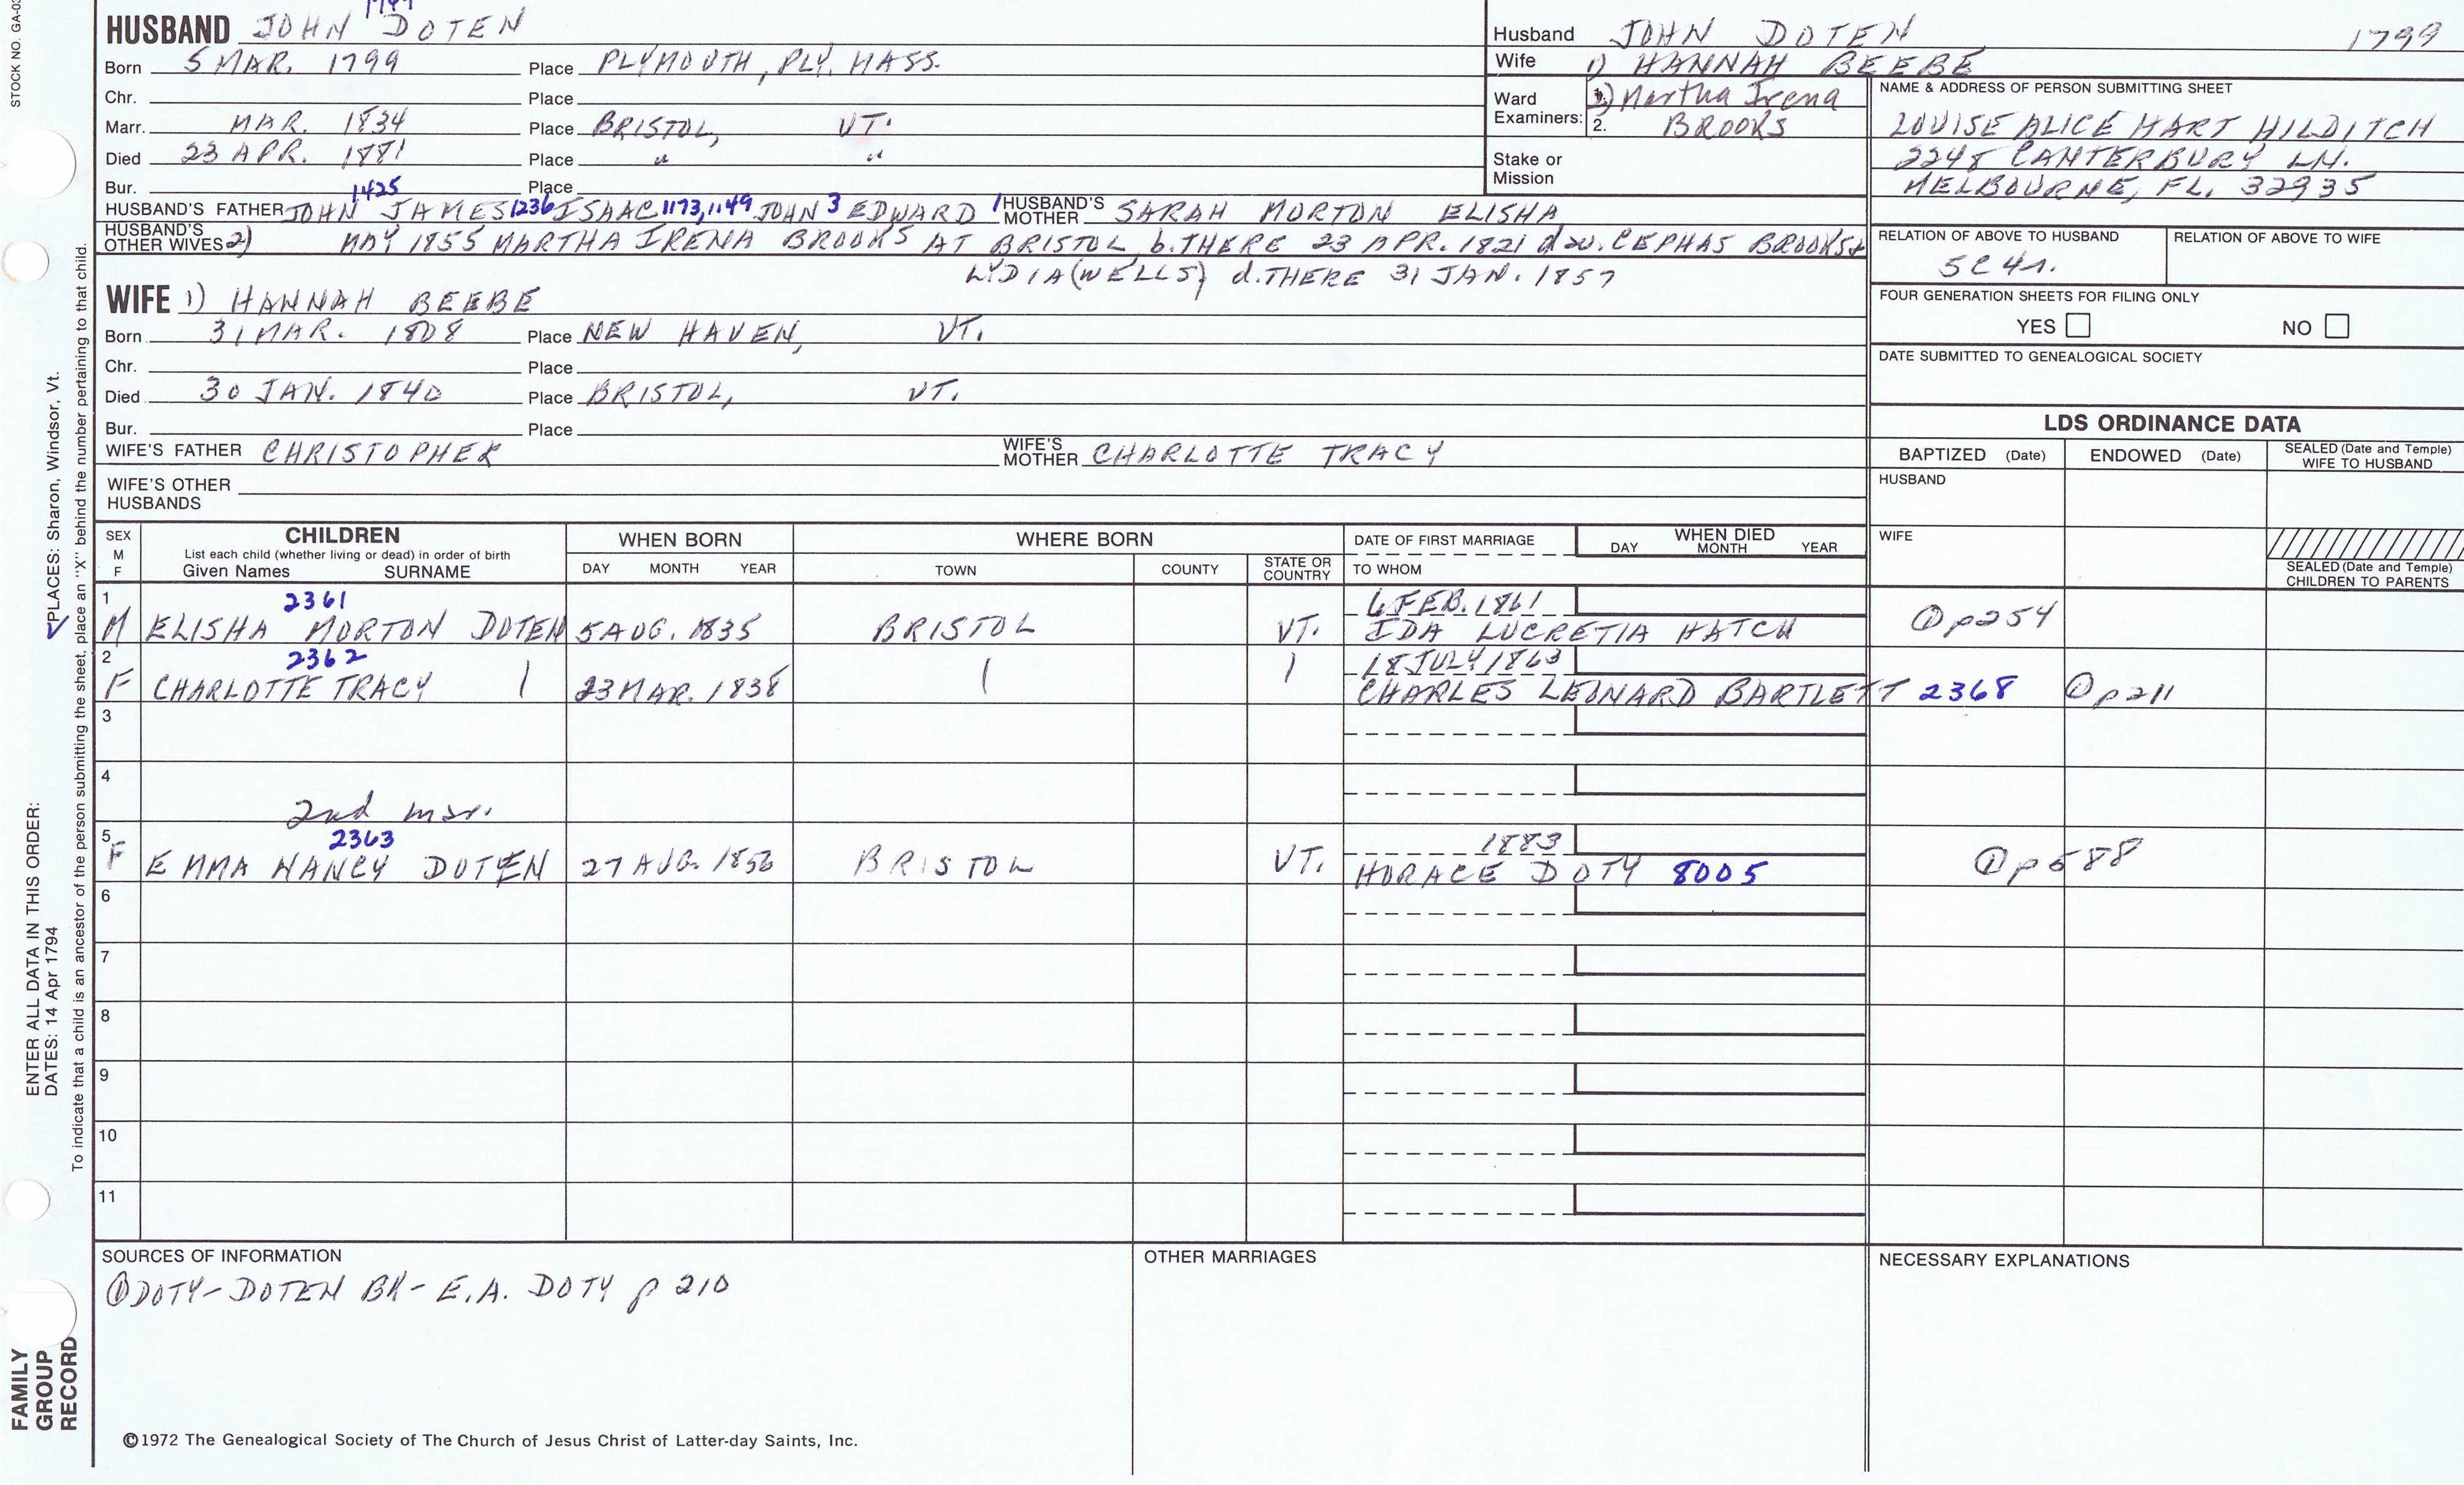 STOCK NO. GA-03
HUSBAND JOHN DOTEN
5 MAR. 1799 Born Place PLYMOUTH, PLY. MASS.
Chr. Place
Marr. MAR. 1834 Place BRISTOL, VT.
Died 23 APR. 1881 Place " "
Bur. Place
1425
HUSBAND'S FATHER JOHN JAMES 1236 ISAAC 1173, 1149 JOHN 3 EDWARD 1 HUSBAND'S MOTHER SARAH MORTON ELISHA
HUSBAND'S OTHER WIVES 2) MAY 1855 MARTHA IRENA BROOKS AT BRISTOL b. THERE 23 APR. 1821 dau. CEPHAS BROOKS &
LYDIA (WELLS) d. THERE 31 JAN. 1857
WIFE 1) HANNAH BEEBE
Born 31 MAR. 1808 Place NEW HAVEN, VT.
Chr. Place
Died 30 JAN. 1840 Place BRISTOL, VT.
Bur. Place
WIFE'S FATHER CHRISTOPHER WIFE'S MOTHER CHARLOTTE TRACY
WIFE'S OTHER HUSBANDS
Husband JOHN DOTEN 1799
Wife 1) HANNAH BEEBE
Ward Examiners: Martha Irena
2. BROOKS
Stake or Mission
NAME & ADDRESS OF PERSON SUBMITTING SHEET
LOUISE ALICE HART HILDITCH
2248 CANTERBURY LN.
MELBOURNE, FL. 32935
RELATION OF ABOVE TO HUSBAND RELATION OF ABOVE TO WIFE
5C4r.
FOUR GENERATION SHEETS FOR FILING ONLY
YES NO
DATE SUBMITTED TO GENEALOGICAL SOCIETY
LDS ORDINANCE DATA
BAPTIZED (Date) ENDOWED (Date) SEALED (Date and Temple) WIFE TO HUSBAND
HUSBAND
WIFE
SEALED (Date and Temple) CHILDREN TO PARENTS
SEX M F CHILDREN WHEN BORN WHERE BORN DATE OF FIRST MARRIAGE WHEN DIED
List each child (whether living or dead) in order of birth DAY MONTH YEAR
Given Names SURNAME DAY MONTH YEAR TOWN COUNTY STATE OR COUNTRY TO WHOM
1 2361 6 FEB. 1861
M ELISHA MORTON DOTEN 5 AUG. 1835 BRISTOL VT. IDA LUCRETIA HATCH ① p254
2 2362 18 JULY 1863
F CHARLOTTE TRACY | 23 MAR. 1838 | | CHARLES LEONARD BARTLETT 2368 ① p211
3
4
2nd mar.
5 2363 1883
F EMMA NANCY DOTEN 27 AUG. 1856 BRISTOL VT. HORACE DOTY 8005 ① p588
6
7
8
9
10
11
SOURCES OF INFORMATION OTHER MARRIAGES NECESSARY EXPLANATIONS
① DOTY-DOTEN BK- E.A. DOTY p 210
©1972 The Genealogical Society of The Church of Jesus Christ of Latter-day Saints, Inc.
ENTER ALL DATA IN THIS ORDER:
DATES: 14 Apr 1794 ✓PLACES: Sharon, Windsor, Vt.
To indicate that a child is an ancestor of the person submitting the sheet, place an "X" behind the number pertaining to that child.
FAMILY
GROUP
RECORD